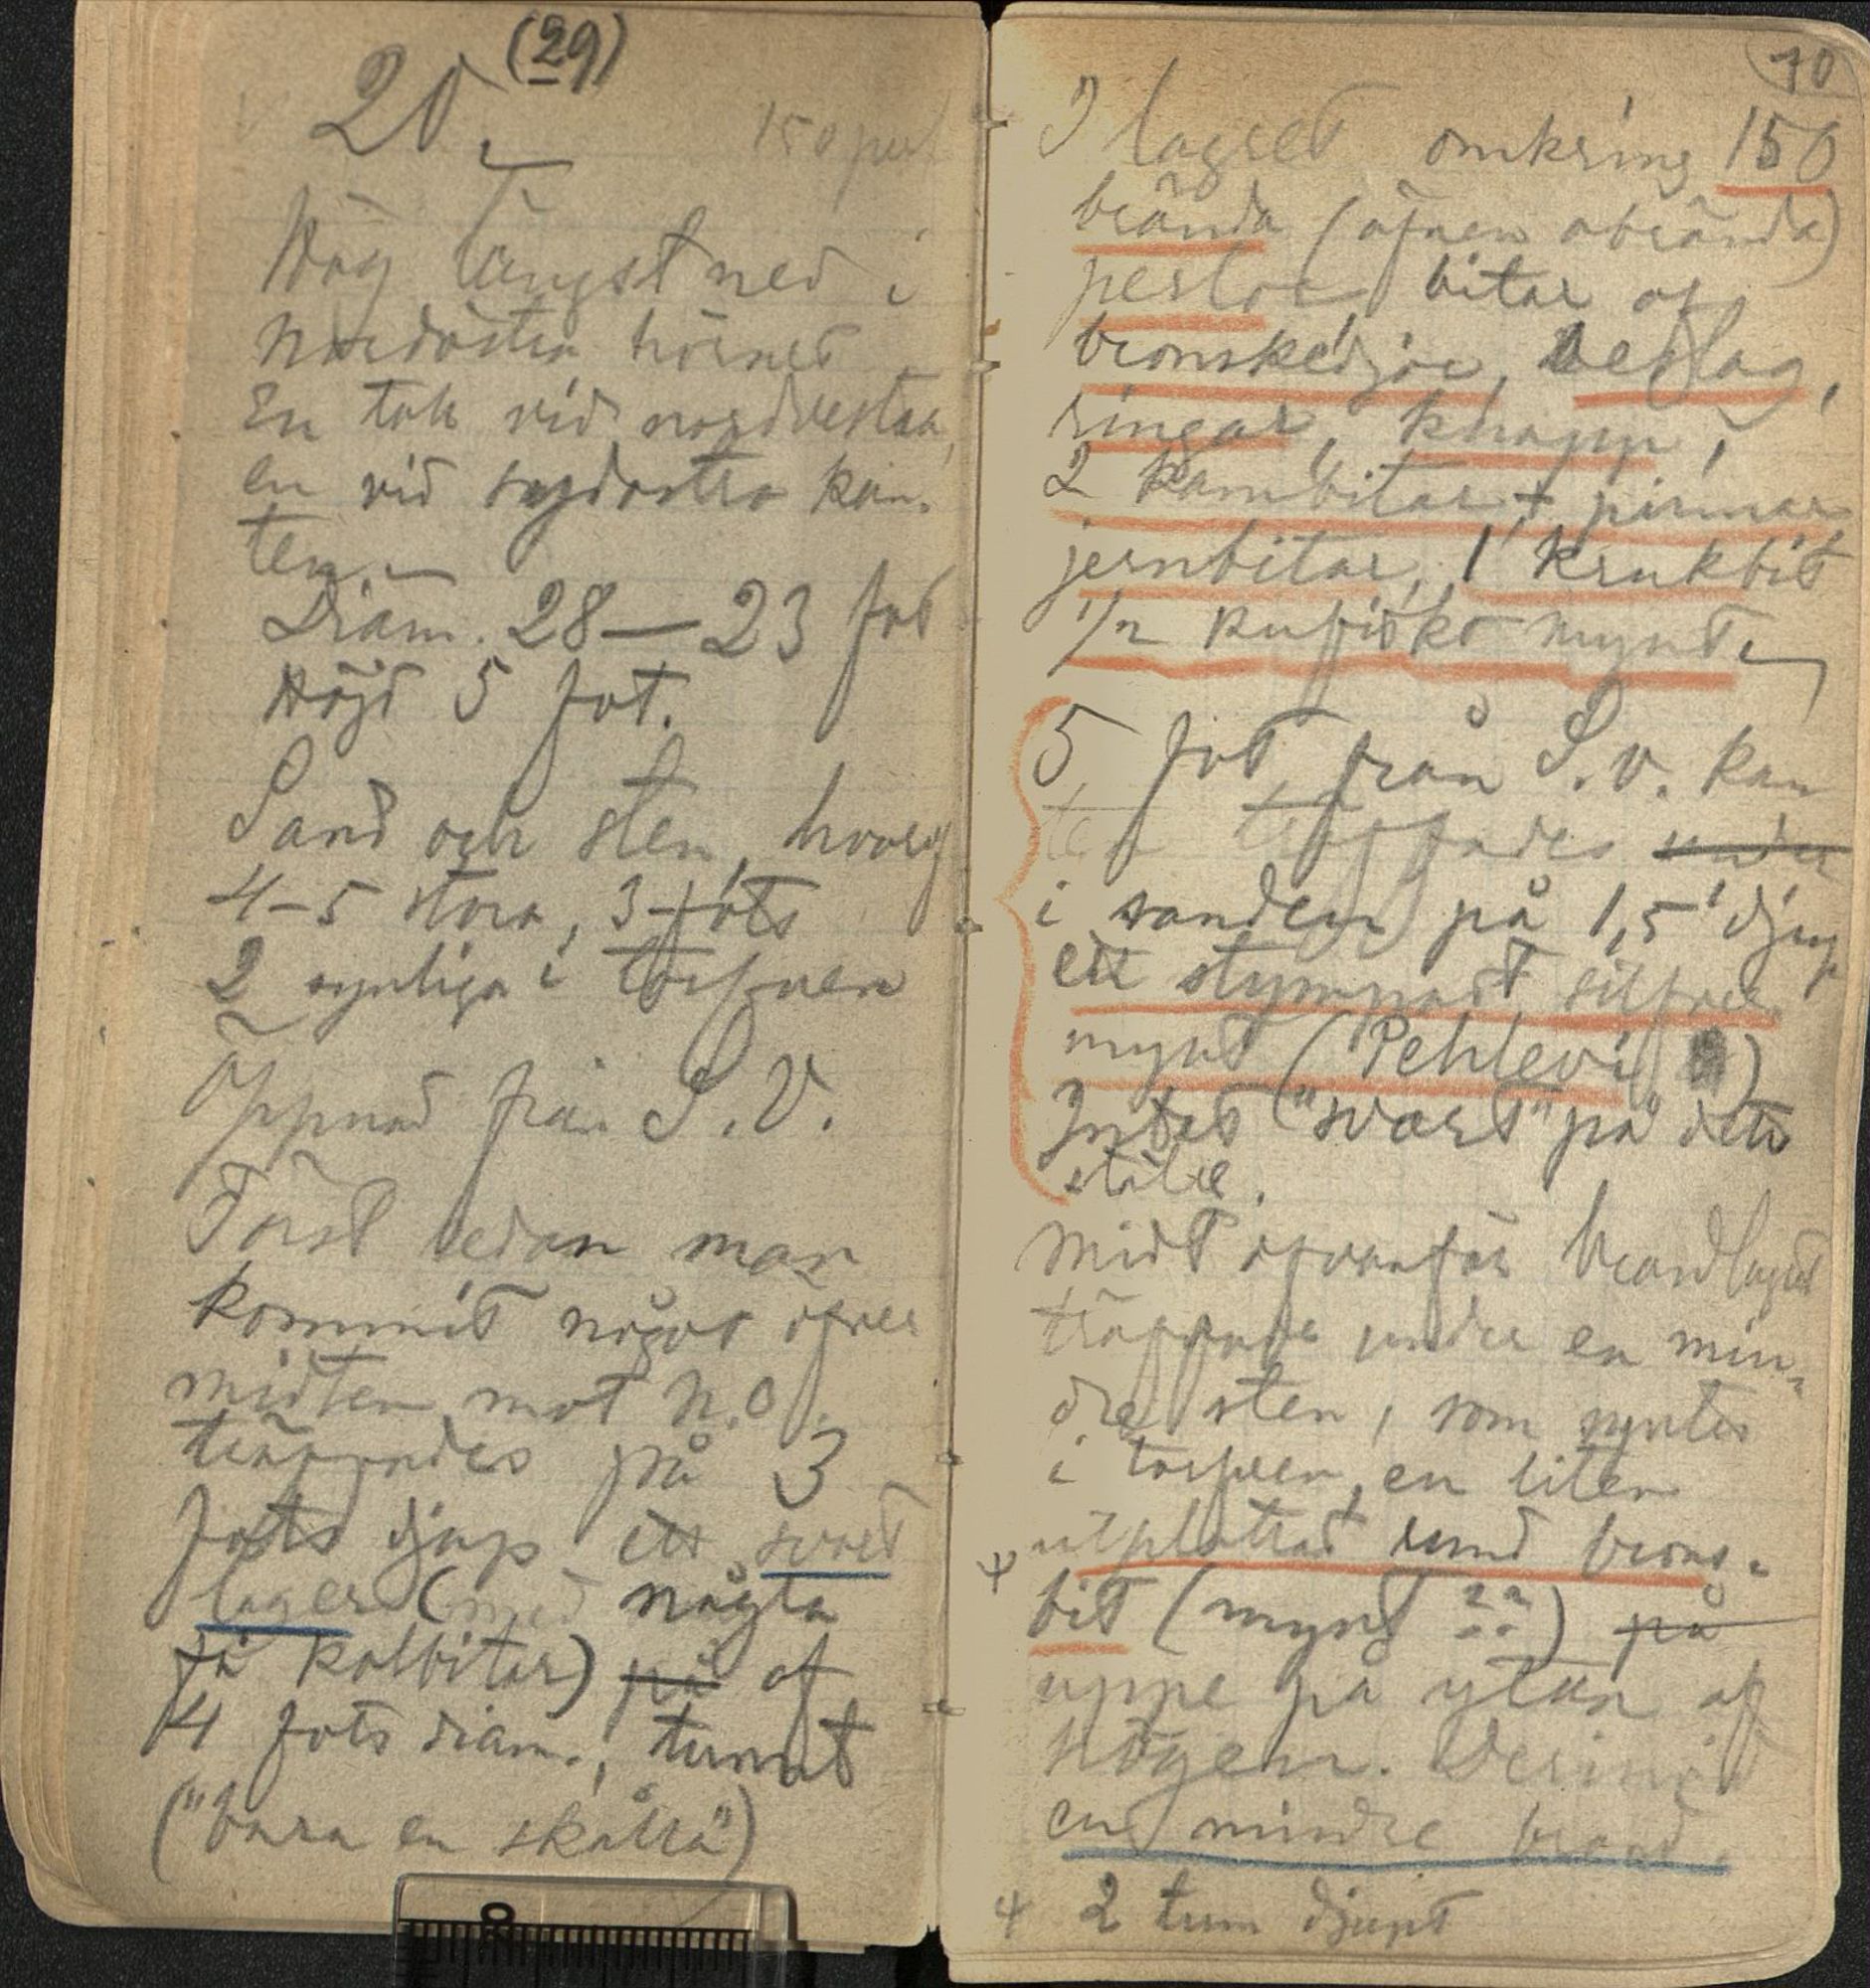 (29)
20.
150 perl
Hög längst ned i
nordöstra hörnet
En tall vid nordvestra,
en vid sydöstra kan-
ten.
Diam. 28–23 fot
Höjd 5 fot.
Sand och sten, hvaraf
4–5 stora, 3-fots
2 synliga i torfven
Öppnad från S.V.
Först sedan man
kommit något öfver
midten mot N.O.
träffades på 3
fots djup ett svart
lager (med några
få kolbitar) på af
4 fots diam., tunnt
("bara en skålla")
70
I lagret omkring 150
brända (äfven obrända)
perlor bitar af
bronskedjor, beslag,
ringar, knapp,
2 kambitar + pinnar
jernbitar, 1 krukbit
1/2 kufiskt mynt.
5 fot från S.V. kan
ten träffades under
i sanden på 1,5' djup
ett stympadt silfver
mynt (Pehlevi)
Intet "svart" på detta
ställe.
Midt ofvanför brandlagret
träffades under en min-
dre sten, som syntes
i torfven, en liten
utplattad rund brons-
bit (mynt ??) på
uppe på ytan af
högen. Derinvid
en mindre brand.
2 tum djupt